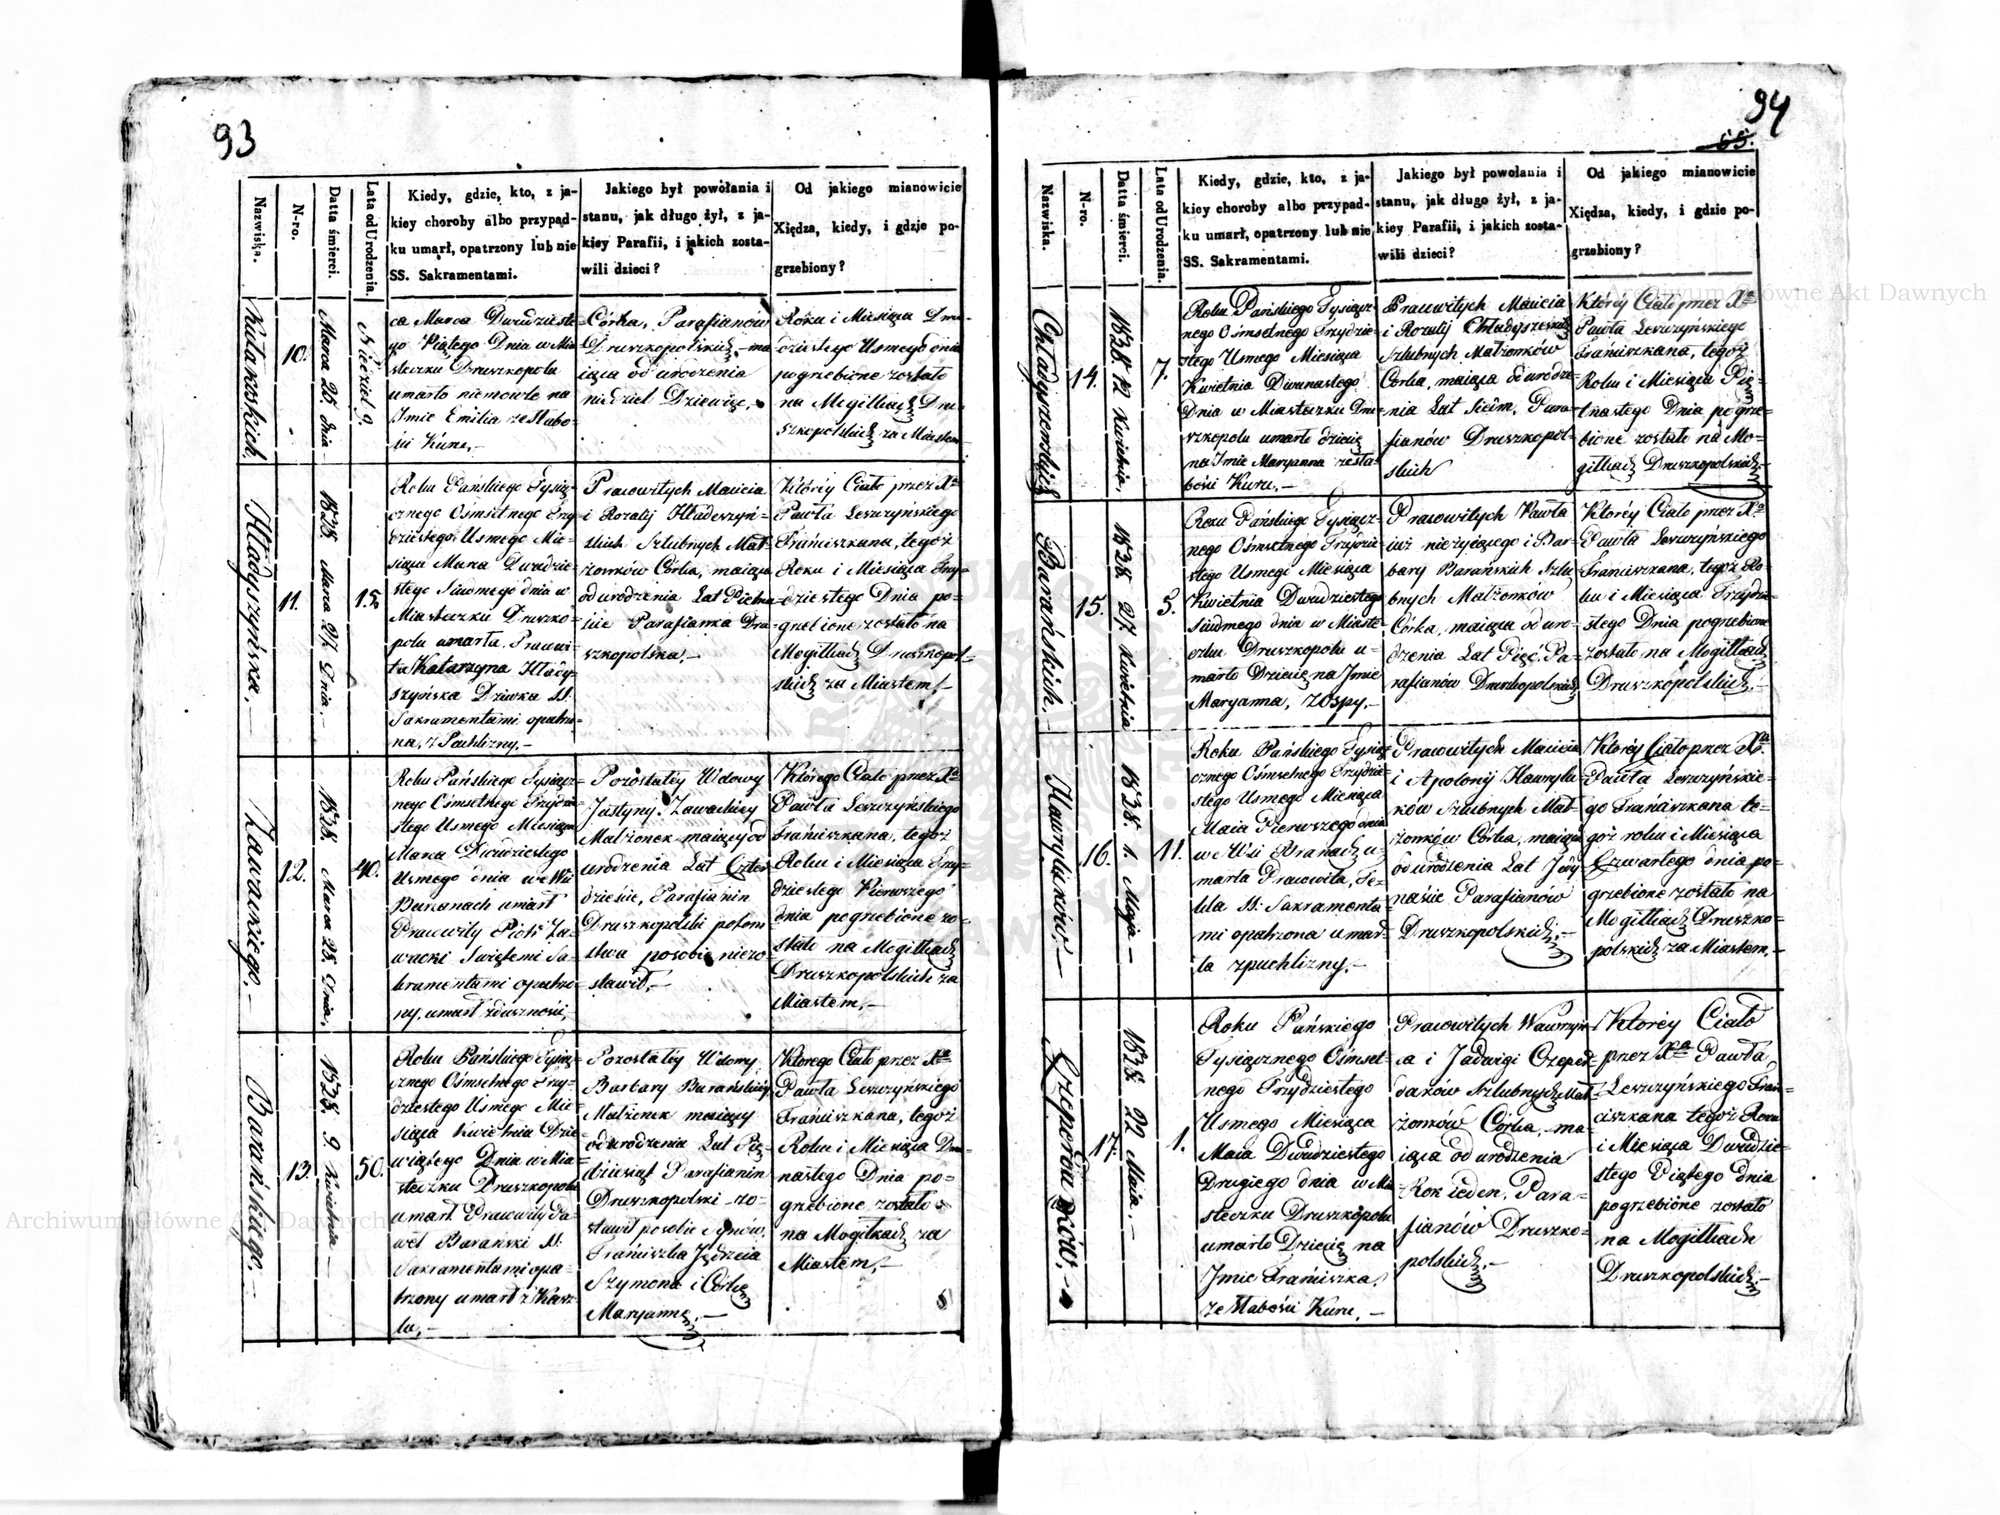 93
Nazwiska.
N-ro.
Datta śmierci.
Lata od Urodzenia.
Kiedy, gdzie, kto, z ja-
kiey choroby albo przypad-
ku umarł, opatrzony lub nie
SS. Sakramentami.
Jakiego był powołania i
stanu, jak długo żył, z ja-
kiey Parafii, i jakich zosta-
wili dzieci?
Od jakiego mianowicie
Xiędza, kiedy, i gdzie po-
grzebiony?
10.
Marca 25. dnia
Niedziel 9.
ca Marca Dwudzieste
go Piątego Dnia w Mia
steczku Druszkopolu
umarło niemowle na
Imie Emilia ze Słabo-
ści Kuru.-
Córka, Parafianów
Druszkopolskich, ma
iąca od urodzenia
niedziel Dziewięć.
Roku i Miesiąca Dwu-
dziestego Usmego dnia
pogrzebione zostało
na Mogiłkach Dru-
szkopolskich za Miastem-
Hładyszyńska.-
11.
1838. Marca 27. Dnia.-
15.
Roku Pańskiego Tysiąc-
cznego Ośmsetnego Trzy
dziestego Usmego Mie-
siąca Marca Dwudzie-
stego Siudmego dnia w
Miasteczku Druszko-
polu umarła Pracowi-
ta Katarzyna Hłady-
szyńska Dziwka SS.
Sakramentami opatrzo-
na, z Puchlizny.-
Pracowitych Macieia
i Rozalij Hładeszyń-
skich Szlubnych Mał-
żonków Córka, maiąca
od urodzenia Lat Pietna-
ście Parafianka Dru-
szkopolska.-
Któréy Ciało przez Xa
Pawła Leszczyńskiego
Frańciszkana, tegoż
Roku i Miesiąca Trzy-
dziestego Dnia po-
grzebione zostało na
Mogiłkach Druszkopol-
skich za Miastem.-
Zawackiego.-
12.
1838. Marca 28. Dnia.
40.
Roku Pańskiego Tysiącz-
nego Ośmsetnego Trzydzie-
stego Usmego Miesiąca
Marca Dwudziestego
Usmego dnia we Wsi
umarł
Pracowity Piotr Za-
wacki Swiętemi Sa-
kramentami opatrzo-
ny, umarł z duszności,-
Pozostałéy Wdowy
Justyny Zawackiey
Małżonek maiący od
urodzenia Lat Czter-
dzieście, Parafianin
Druszkopolski potom
stwa po sobie niezo-
stawił.-
Którego Ciało przez Xa
Pawła Leszczyńskiego
Frańciszkana, tegoż
Roku i Miesiąca Trzy-
dziestego Pierwszego
dnia pogrzebione zo-
stało na Mogiłkach
Druszkopolskich za
Miastem,-
Barańskiego.-
13.
1838. 9. Kwietnia-
50.
Roku Pańskiego Tysią-
cznego Ośmsetnego Trzy-
dziestego Usmego Mie-
siąca Kwietnia Dzie-
wiątego Dnia w Mia-
steczku Druszkopolu
umarł Pracowity Pa-
weł Barański SS.
Sakramentami opa-
trzony umarł z Kasz-
lu,-
Pozostałéy Wdowy
Barbary Barańskiey
Małżonek maiący
od urodzenia Lat Pię-
dziesiąt Parafianin
Druszkopolski zo-
stawił po sobie Synów,
Frańciszka Jędrzeia
Szymona i Córkę
Maryannę.-
Którego Ciało przez Xa
Pawła Leszczyńskiego
Frańciszkana, tegoż
Roku i Miesiąca Dwu-
nastego Dnia po-
grzebione zostało
na Mogiłkach za
Miastem,-
94
Nazwiska.
N-ro.
Datta śmierci.
Lata od Urodzenia.
Kiedy, gdzie, kto, z ja-
kiey choroby albo przypad-
ku umarł, opatrzony lub nie
SS. Sakramentami.
Jakiego był powołania i
stanu, jak długo żył, z ja-
kiey Parafii, i jakich zosta-
wili dzieci?
Od jakiego mianowicie
Xiędza, kiedy, i gdzie po-
grzebiony?
Chładyszewskich
14.
1838. 12 Kwietnia.
7.
Roku Pańskiego Tysiącz-
nego Ośmsetnego Trzydzie-
stego Usmego Miesiąca
Kwietnia Dwunastego
Dnia w Miasteczku Dru-
szkopolu umarło dziecię
na Imie Maryanna ze sła-
bości Kuru.-
Pracowitych Macieia
i Rozalij Chładyszewskich
Szlubnych Małżonków
Córka, maiąca od urodze-
nia Lat Siedm, Para-
fianów Druszkopol-
skich
Któréy Ciało przez Xa
Pawła Leszczyńskiego
Frańciszkana, tegoż
Roku i Miesiąca Pię-
tnastego Dnia pogrze-
bione zostało na Mo-
giłkach Druszkopolskich,-
Barańskich.
15.
1838. 27. Kwietnia
5.
Roku Pańskiego Tysiącz-
nego Ośmsetnego Trzydzie-
stego Usmego Miesiąca
Kwietnia Dwudziestego
Siudmego dnia w Miaste-
czku Druszkopolu u-
marło Dziecię na Jmie
Maryanna, z Ospy.-
Pracowitych Pawła
iuż nieżyiącego i Bar-
bary Barańskich Szlu
bnych Małżonków
Córka, maiąca od uro-
dzenia Lat Pięć, Pa-
rafianów Druszkopolskich
Któréy Ciało przez Xa
Pawła Leszczyńskiego
Franciszkana, tegoż Ro-
ku i Miesiąca Trzydzie-
stego Dnia pogrzebione
zostało na Mogiłkach
Druszkopolskich.-
Hawryluków.-
16.
1838. 1. Maja-
11.
Roku Pańskiego Tysią-
cznego Ośmsetnego Trzydzie-
stego Usmego Miesiąca
Maia Pierwszego dnia
we Wsi u-
marła Pracowita, Te-
kla SS: Sakramenta-
mi opatrzona umar-
ła z puchlizny.-
Pracowitych Macieia
i Apolonij Hawrylu-
ków Szlubnych Mał-
żonków Córka, maiąca
od urodzenia Lat Jedy
naście Parafianów
Druszkopolskich.-
Któréy Ciało przez Xa
Pawła Leszczyńskie-
go Frańciszkana te-
goż roku i Miesiąca
Czwartego dnia po-
grzebione zostało na
Mogiłkach Druszko-
polskich za Miastem.-
17.
1838. 22 Maia.-
1.
Roku Pańskiego
Tysiącznego Ośmset-
nego Trzydziestego
Usmego Miesiąca
Maia Dwudziestego
Drugiego dnia w Mia-
steczku Druszkopolu
umarło Dziecię na
Jmie Frańciszka,
ze Słabości Kuru,-
Pracowitych Wawrzyń-
ca i Jadwigi Czeper-
daków Szlubnych Mał-
żonków Córka, ma-
iąca od urodzenia
Rok ieden, Para-
fianów Druszko-
polskich.-
Któréy Ciało
przez Xa Pawła
Leszczyńskiego Frań-
ciszkana tegoż Roku
i Miesiąca Dwudzie-
stego Piątego dnia
pogrzebione zostało
na Mogiłkach
Druszkopolskich.-
Archiwum Główne Akt Dawnych
Archiwum Główne Akt Dawnych